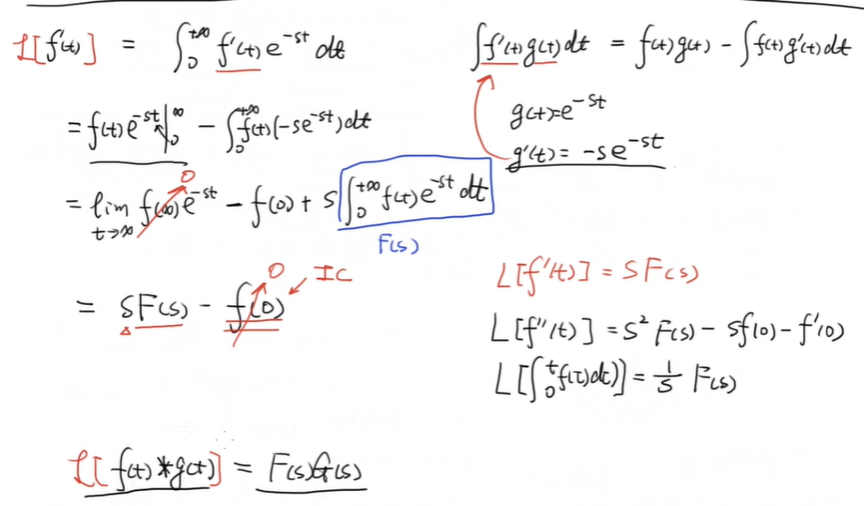 L[f'(t)] = ∫₀^{+∞} f'(t) e^{-st} dt
= f(t) e^{-st} |₀^∞ - ∫₀^{+∞} f(t) (-s e^{-st}) dt
0
= lim_{t→∞} f(∞) e^{-st} - f(0) + s ∫₀^{+∞} f(t) e^{-st} dt
F(s)
0 IC
= s F(s) - f(0)
L[f(t) * g(t)] = F(s) G(s)
∫ f'(t) g(t) dt = f(t) g(t) - ∫ f(t) g'(t) dt
g(t) = e^{-st}
g'(t) = -s e^{-st}
L[f'(t)] = S F(s)
L[f''(t)] = S² F(s) - S f(0) - f'(0)
L[∫₀^t f(τ) dτ)] = 1/S F(s)